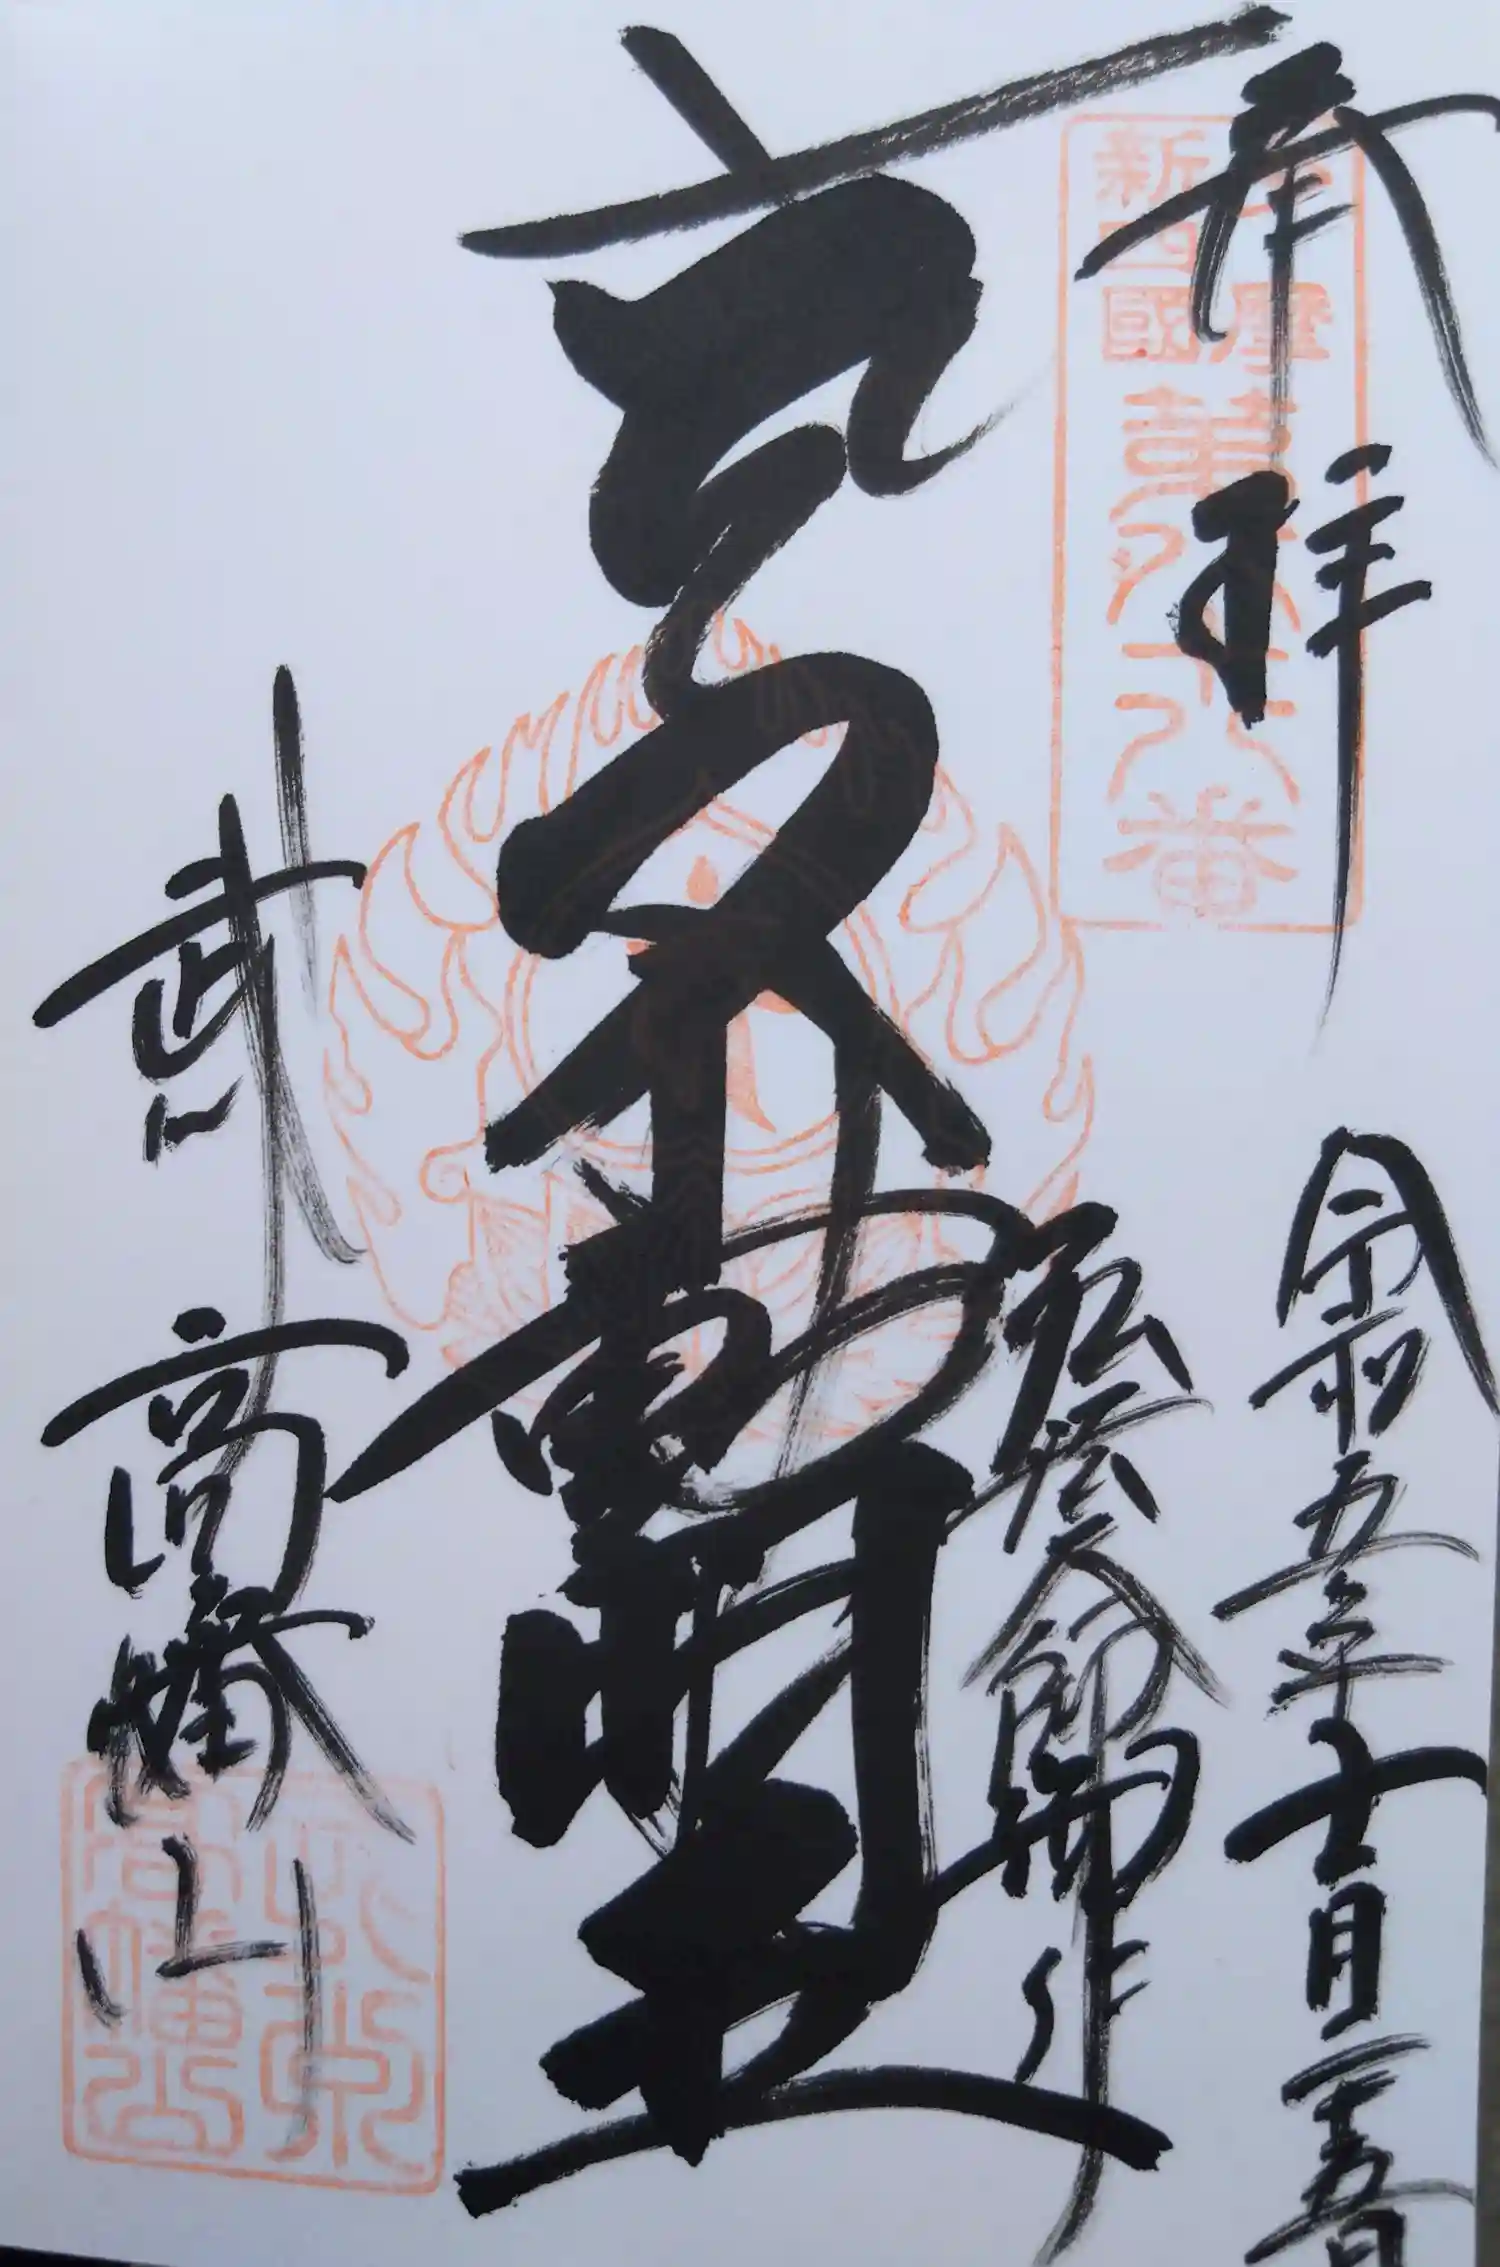 奉拝
令和五年十一月二十五日
新四國
第八十八番
弘法大師作
不動明王
武州
高幡山
高幡山